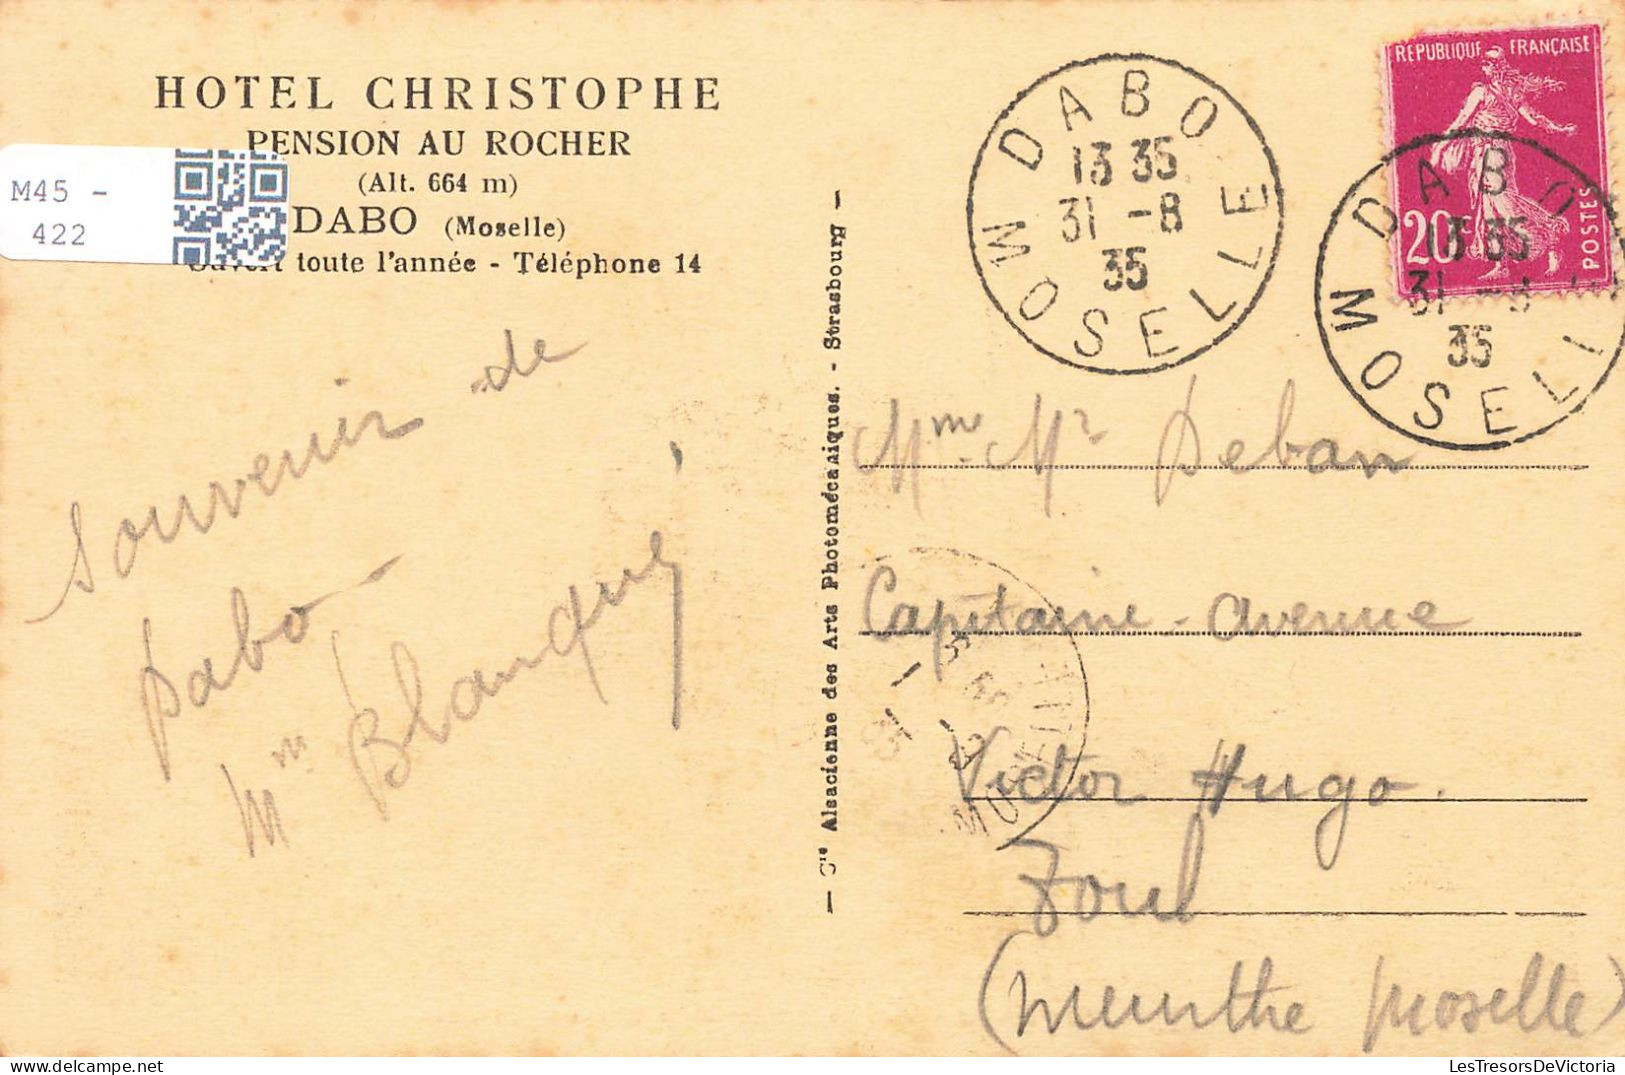 HOTEL CHRISTOPHE
PENSION AU ROCHER
(Alt. 664 m)
DABO (Moselle)
Ouvert toute l'année - Téléphone 14
M45 -
422
Souvenir de
Dabo -
Mme Blanqué
— Cie Alsacienne des Arts Photomécaniques. - Strasbourg —
DABO
13 35
31 -8
35
MOSELLE
REPUBLIQUE FRANÇAISE
20c
POSTES
DABO
13 35
31 -8
35
MOSELLE
Mme Mr Deban
Capitaine - avenue
Victor Hugo.
Toul
(Meurthe Moselle)
LesTresorsDeVictoria